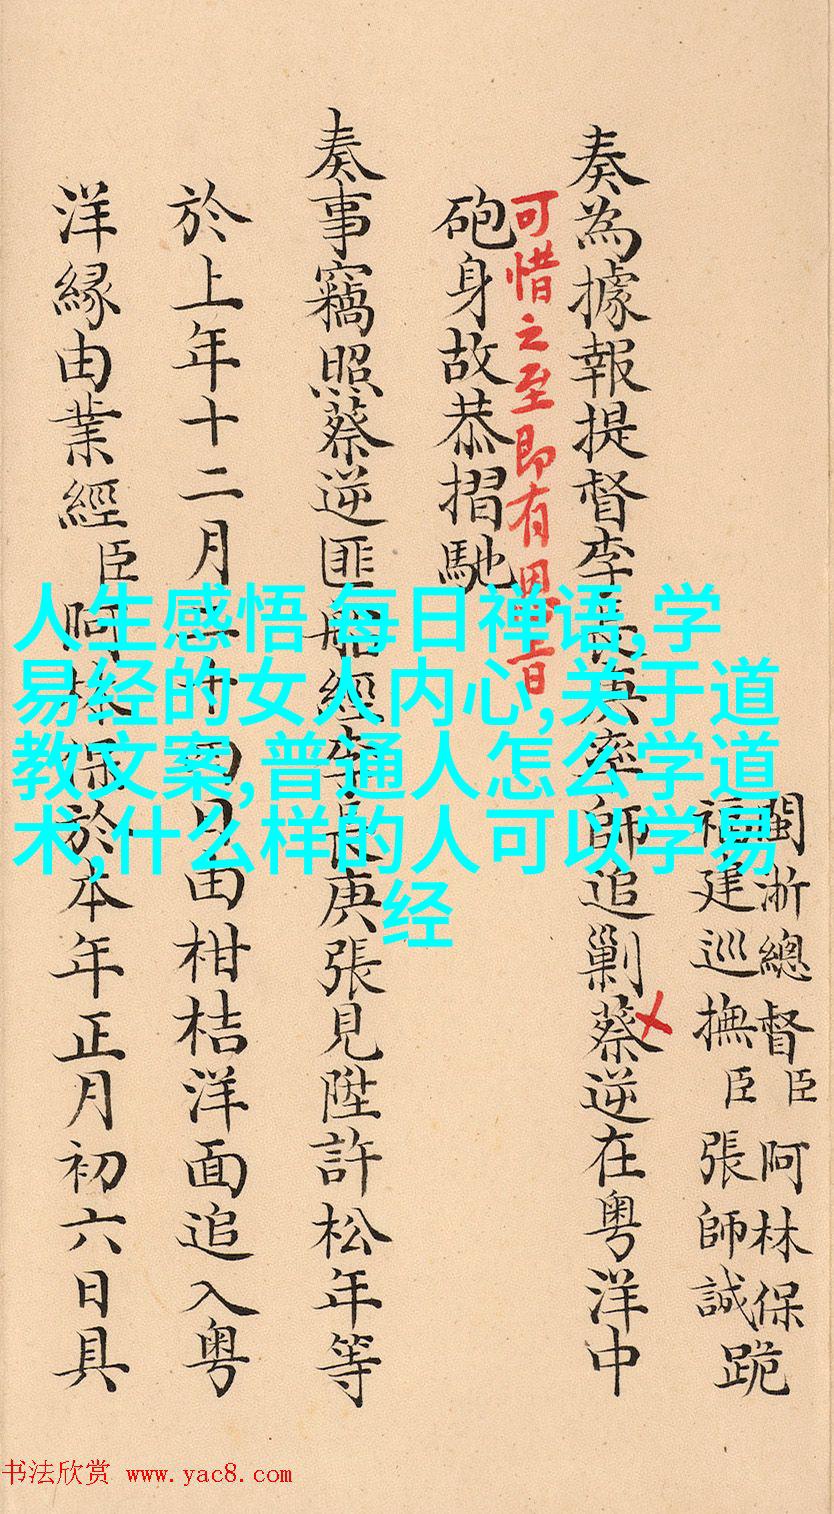 閩浙總督臣阿林保
福建巡撫臣張師誠跪
奏為據報提督李長庚率師追剿蔡逆在粤洋中
可惜之至即有恩旨
砲身故恭摺馳
奏事竊照蔡逆匪船經李長庚張見陞許松年等
於上年十二月二十四日由柑桔洋面追入粤
洋縁由業經臣阿林保於本年正月初六日具
人生感悟 每日禅语,学
易经的女人内心,关于道
教文案,普通人怎么学道
术,什么样的人可以学易
经
书法欣赏 www.yac8.com